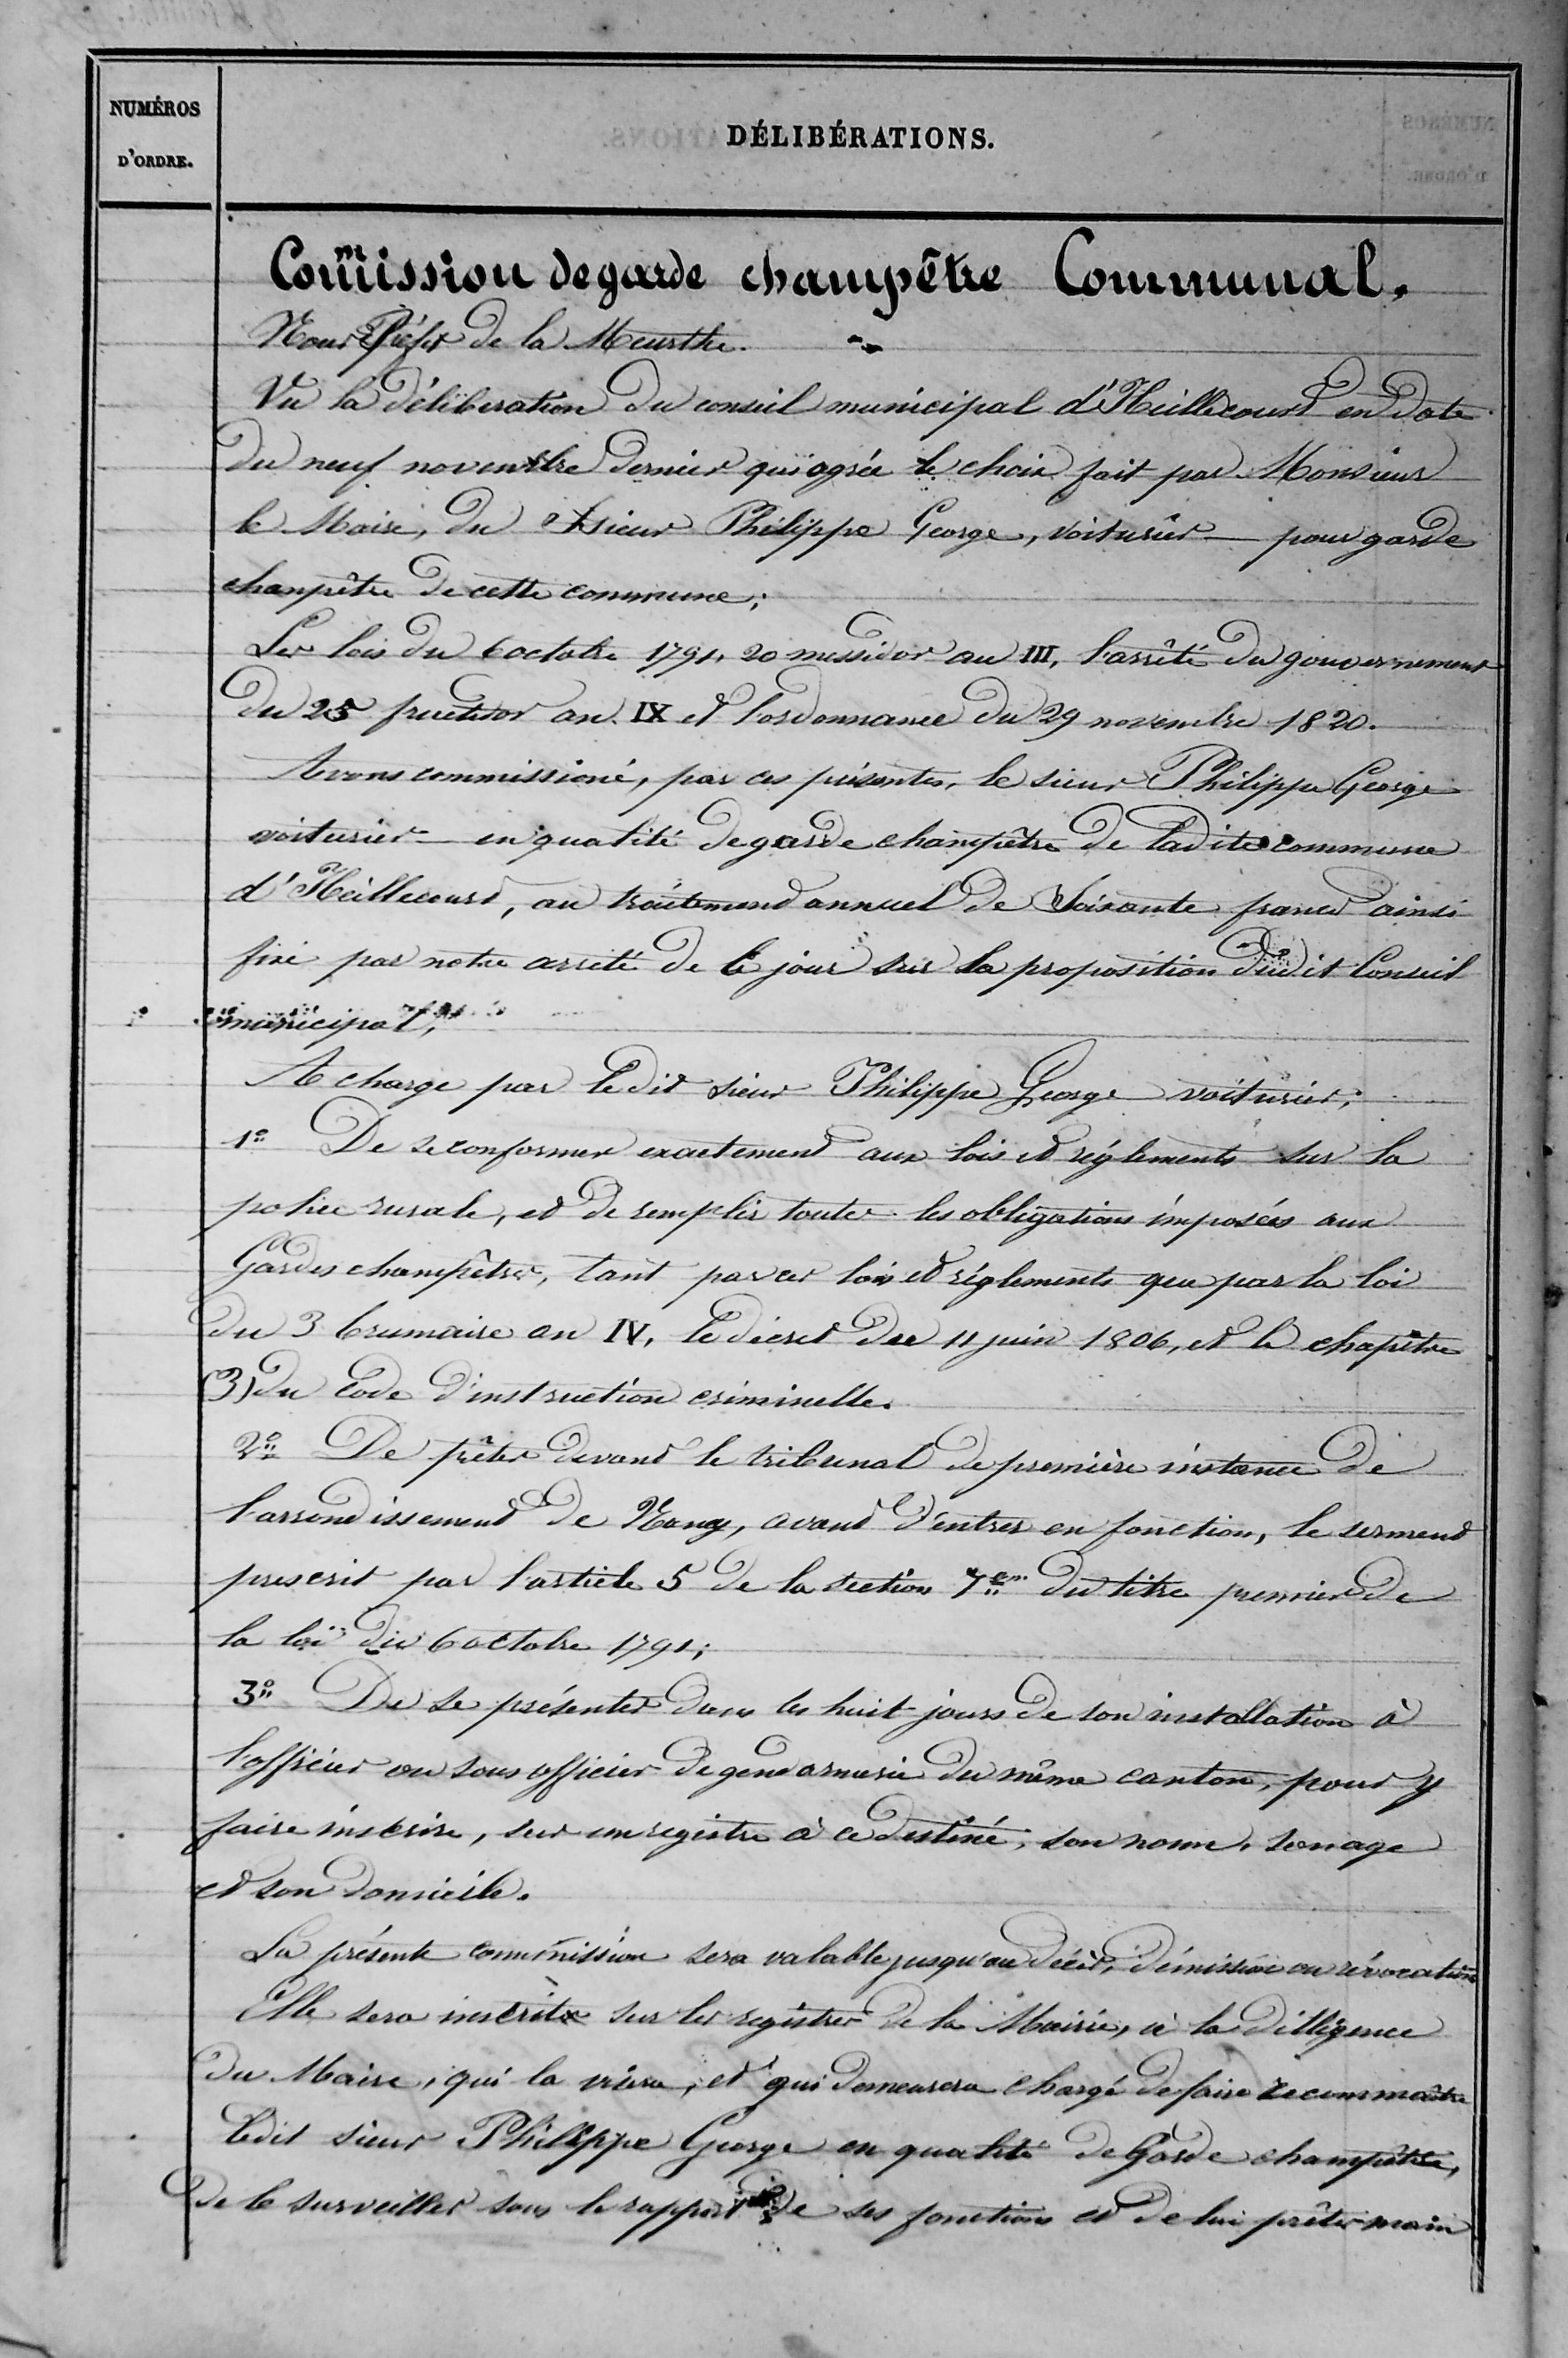 NUMÉROS
D'ORDRE.
DÉLIBÉRATIONS.
Com̃ission de garde champêtre Communal.
Nous Préfet de la Meurthe.
Vu la délibération du conseil municipal d'Heillecourt en date
du neuf novembre dernier qui agrée le choix fait par Monsieur
le Maire, du sieur Philippe George, voiturier pour garde
champêtre de cette commune;
Les lois du 6 octobre 1791, 20 messidor an III, l'arrêté du gouvernement
du 25 fructidor an IX et l'ordonnance du 29 novembre 1820.
Avons commissioné, par ces présentes, le sieur Philippe George
voiturier en qualité de garde champêtre de ladite commune
d'Heillecourt, au traitement annuel de Soixante francs ainsi
fixé par notre arreté de ce jour sur la proposition dudit Conseil
municipal;
A charge par ledit sieur Philippe George voiturier;
1° De se conformer exactement aux lois et réglements sur la
police rurale, et de remplir toutes les obligations imposées aux
Gardes champêtres, tant par ces lois et réglements que par la loi
du 3 brumaire an IV, le décret du 11 juin 1806, et le chapître
(3) du Code d'instruction criminelle.
2° De prêter devant le tribunal de première instance de
l'arrondissement de Nancy, avant d'entrer en fonction, le serment
prescrit par l'article 5 de la section 7em du titre premier de
la loi du 6 octobre 1791;
3° De se présenter dans les huit jours de son installation à
l'officier ou sous officier de gendarmerie du même canton, pour y
faire inscrire, sur un registre à ce destiné, son nom, son age
et son domicile.
La présente commission sera valable jusqu'au décès, démission ou révocation
Elle sera inscrite sur les registres de la Mairie, à la dilligence
du Maire, qui la visera, et qui demeurera chargé de faire reconnaître
ledit sieur Philippe George en qualité de Garde champêtre,
de le surveiller sous le rapport de ses fonctions et de lui prêter main